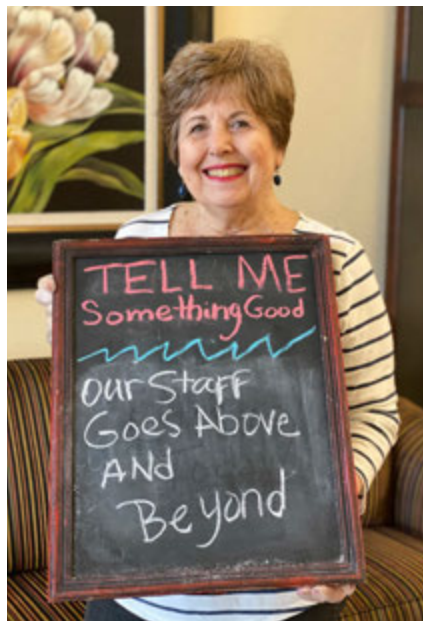 TELL ME
Something Good
Our Staff
Goes Above
AND
Beyond